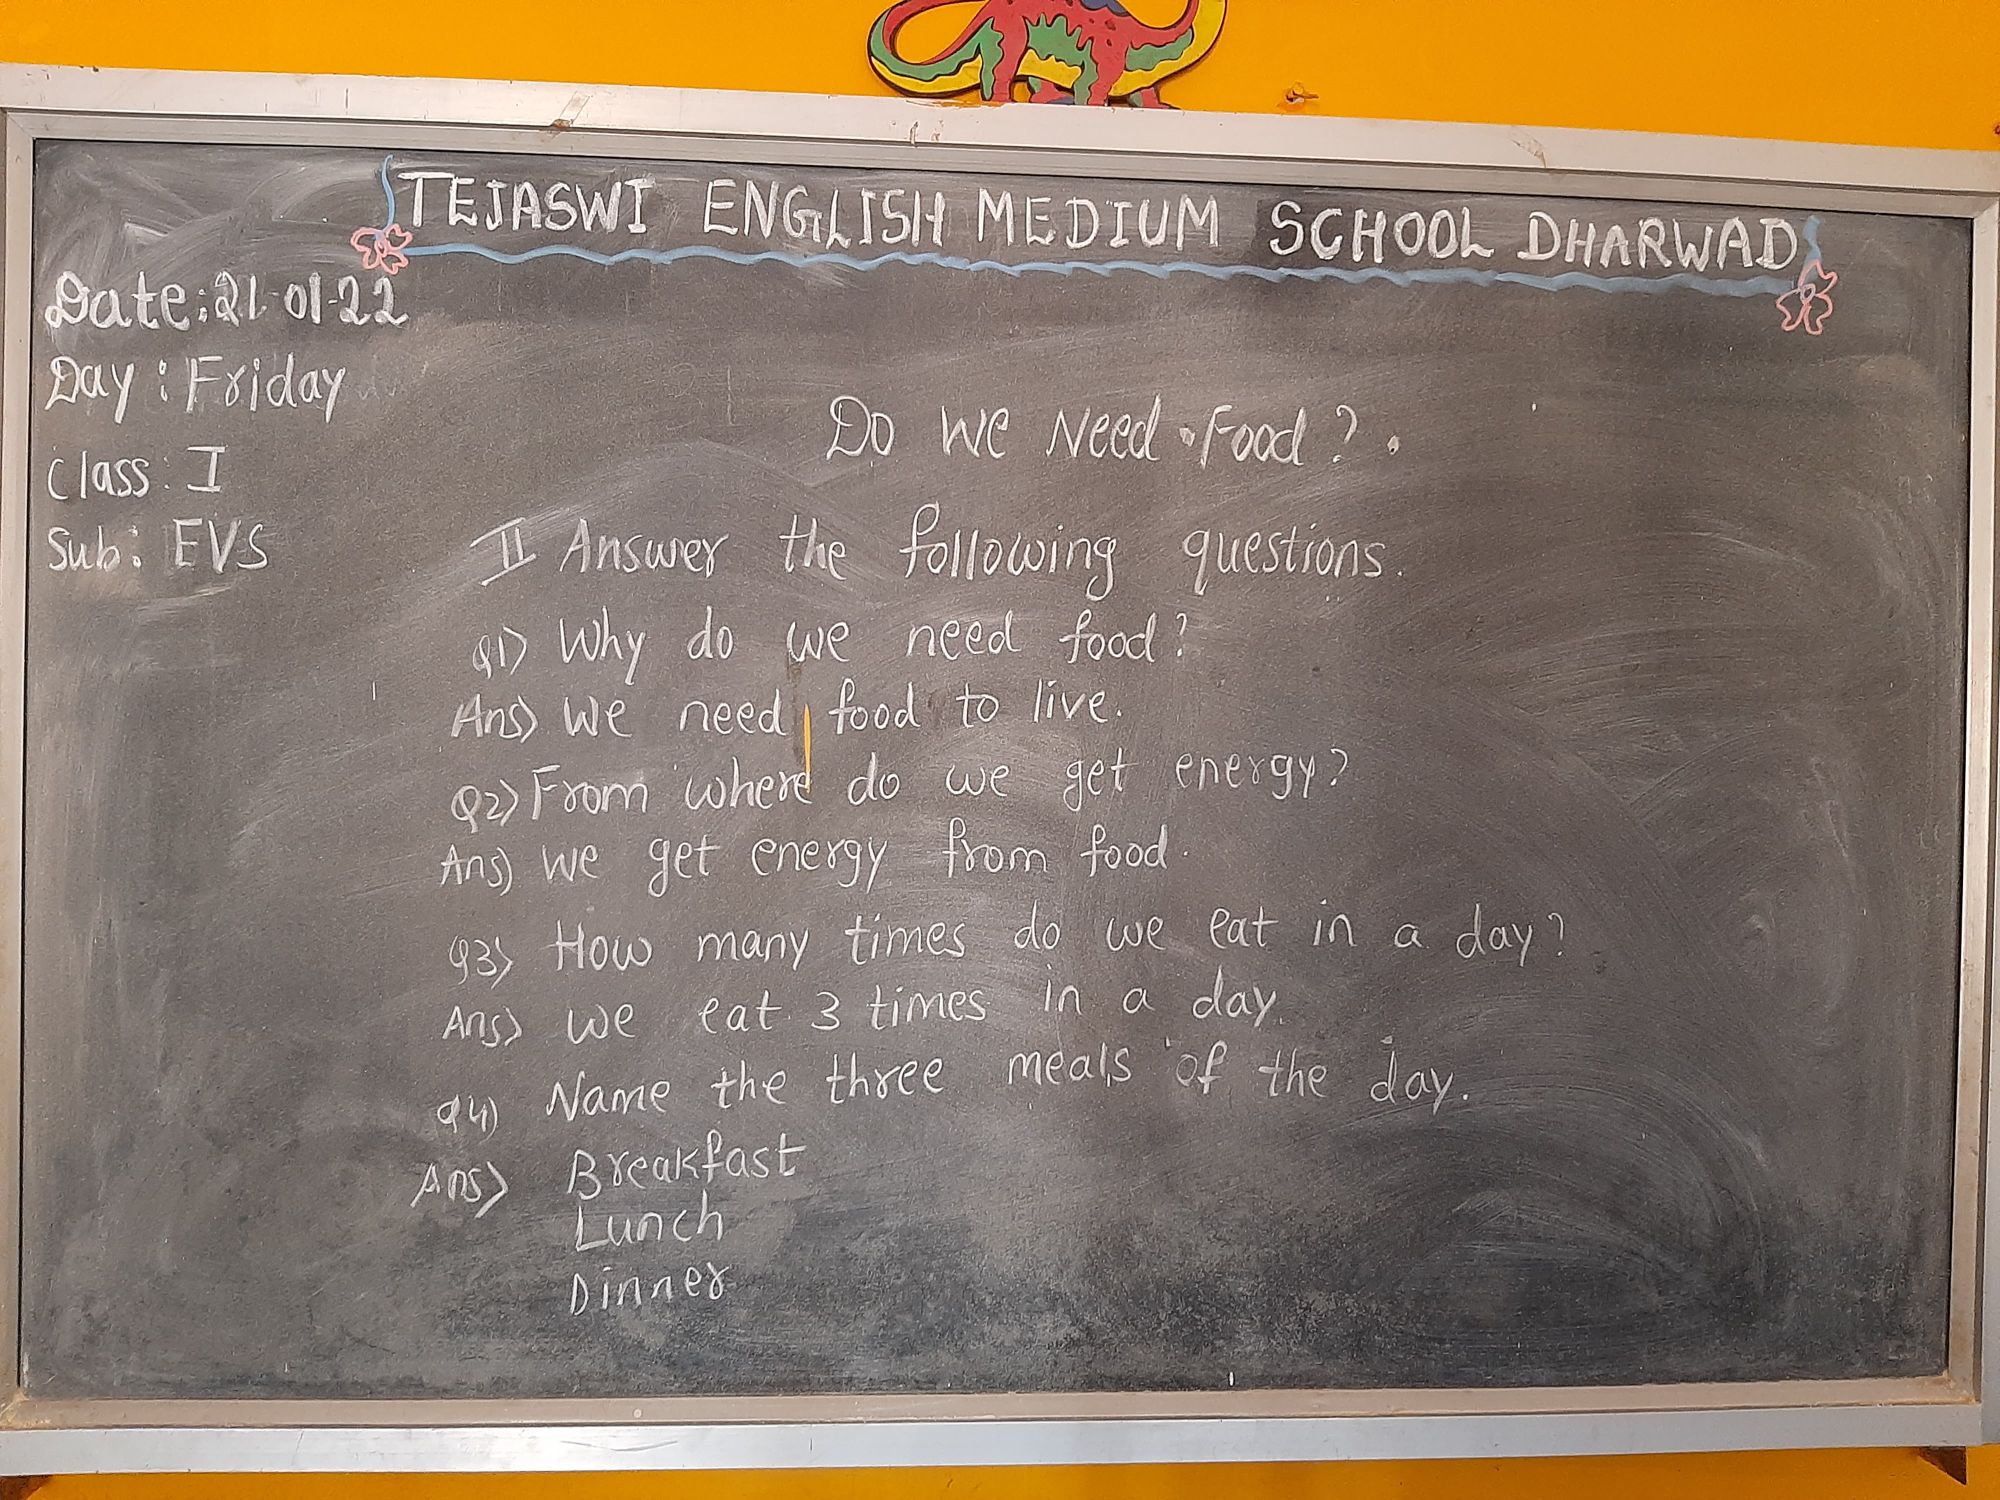 TEJASWI ENGLISH MEDIUM SCHOOL DHARWAD
Date: 21-01-22
Day: Friday
Class: I
Sub: EVS
Do We Need Food?
II Answer the following questions.
Q1) Why do we need food?
Ans) We need food to live.
Q2) From where do we get energy?
Ans) We get energy from food.
Q3) How many times do we eat in a day?
Ans) We eat 3 times in a day.
Q4) Name the three meals of the day.
Ans) Breakfast
Lunch
Dinner